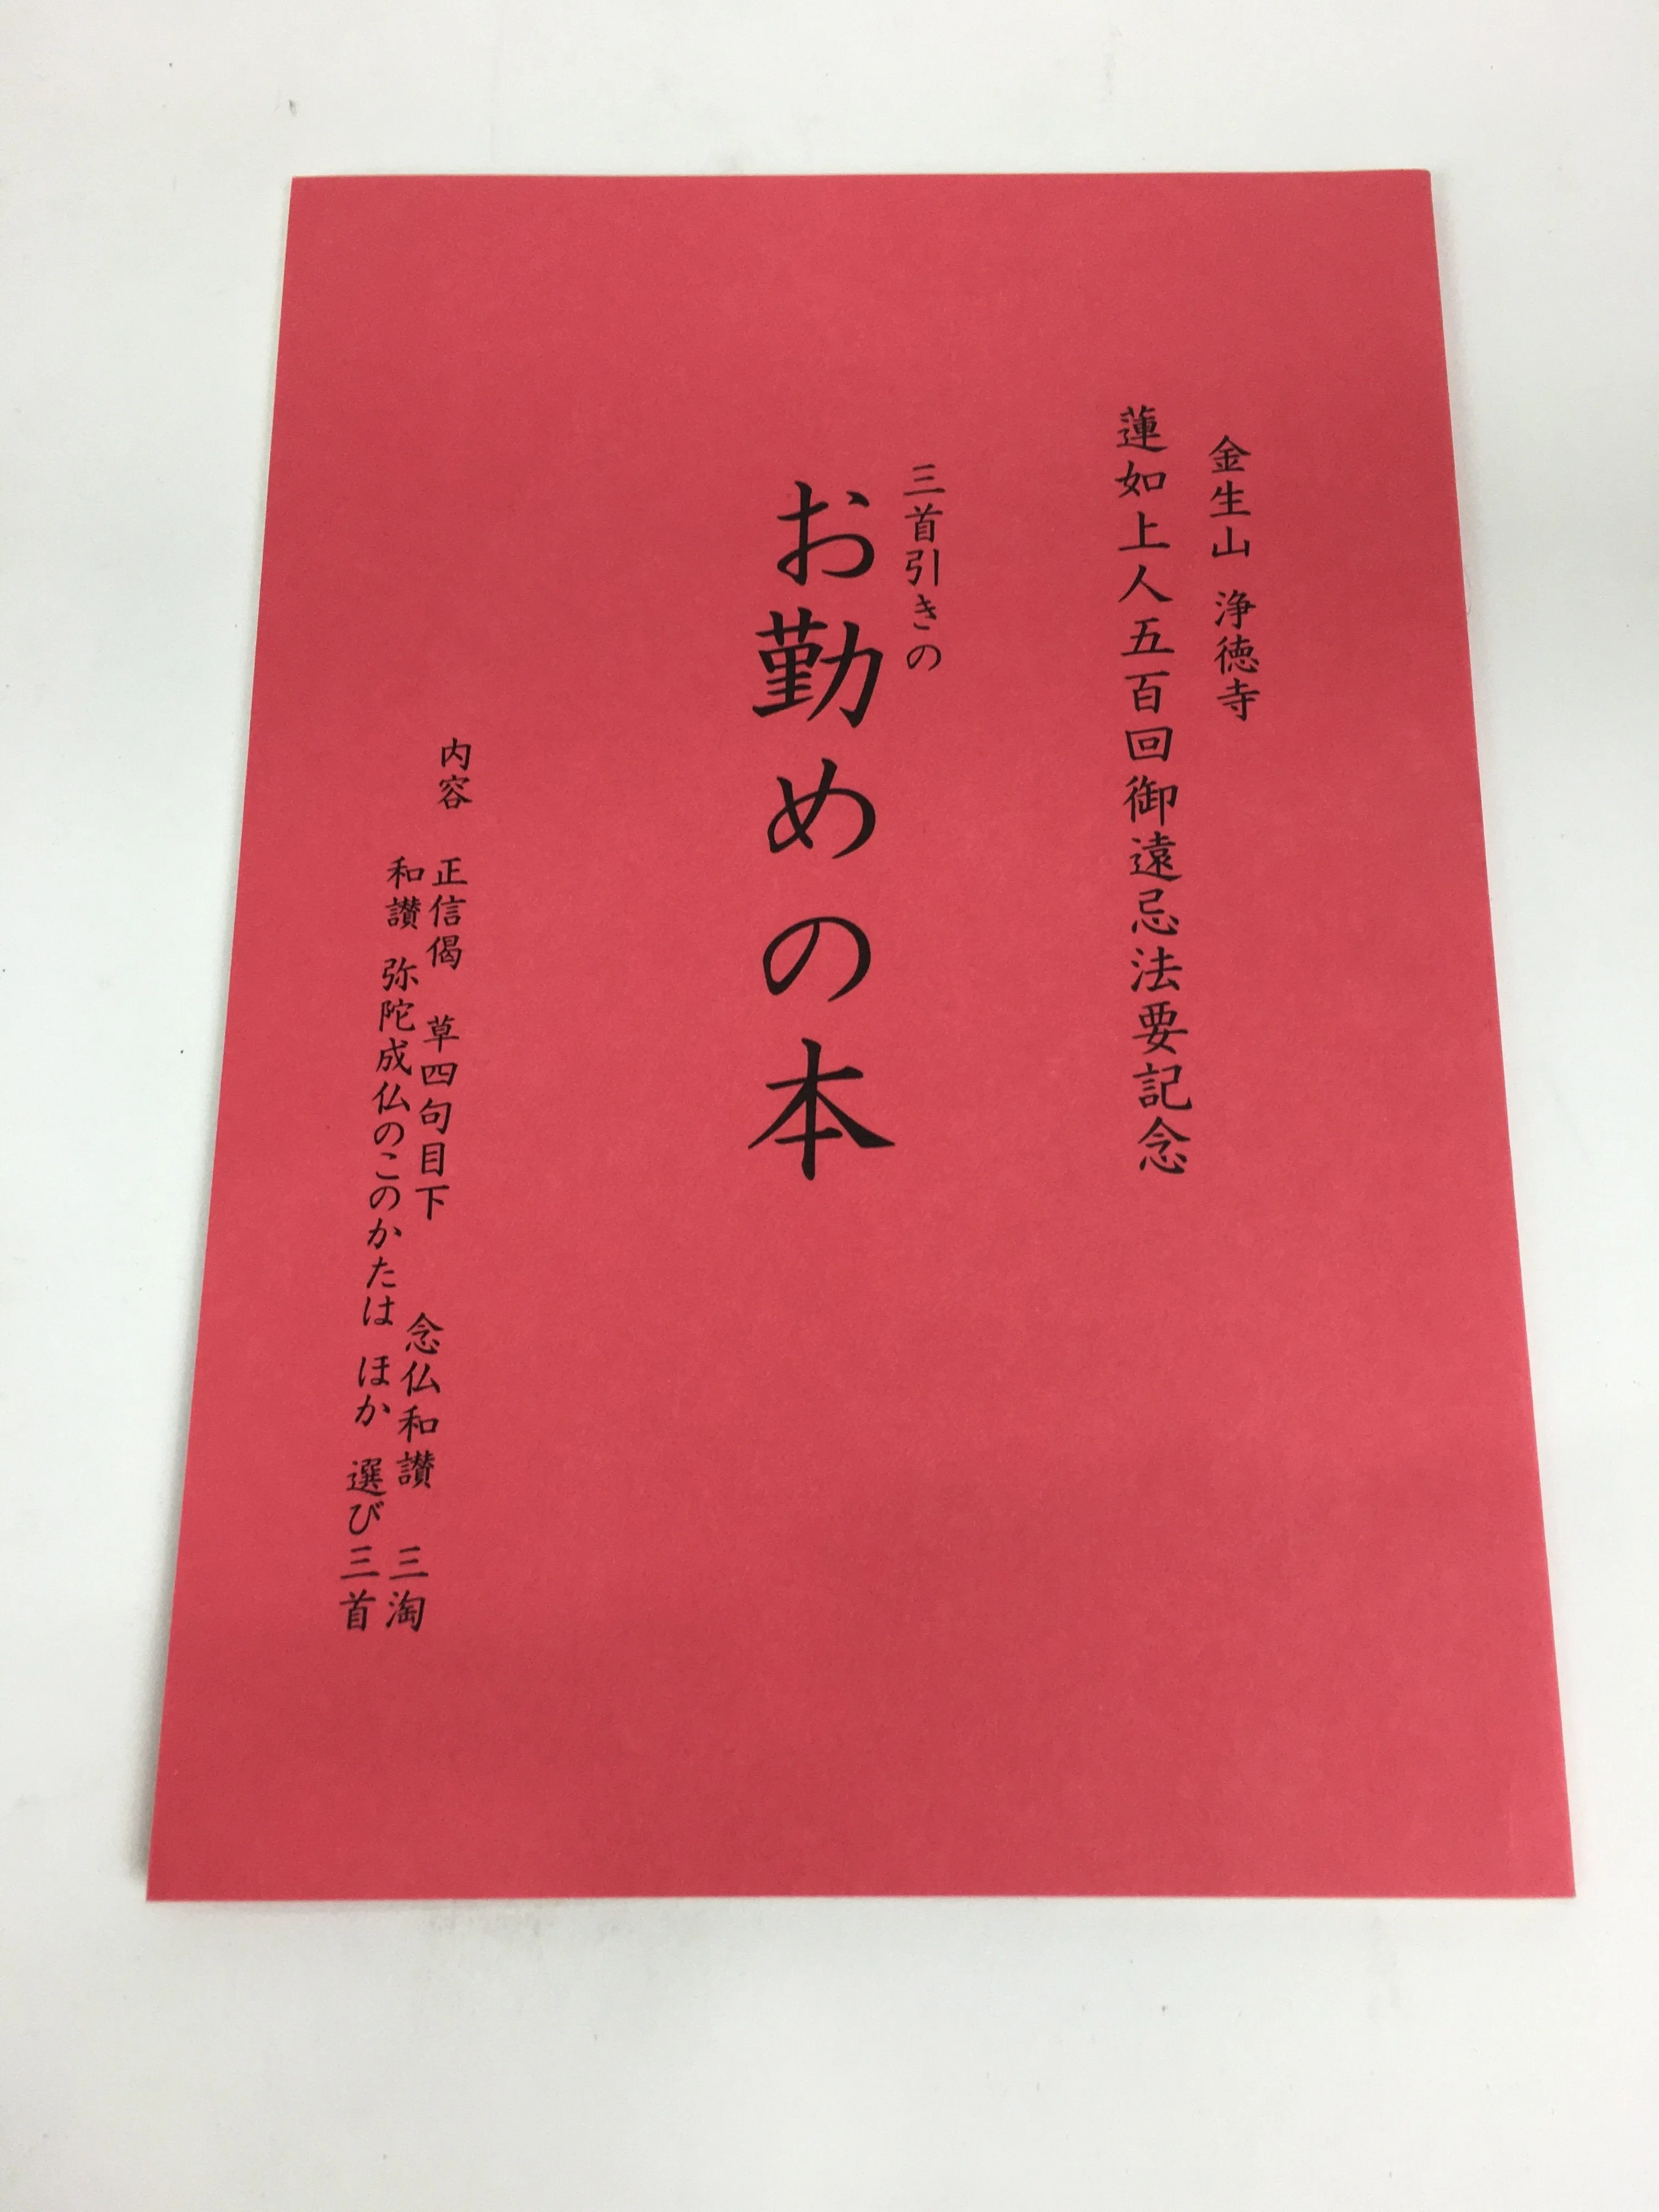 金生山 浄徳寺
蓮如上人五百回御遠忌法要記念
三首引きの
お勤めの本
内容 正信偈 草四句目下 念仏和讃 三淘
和讃 弥陀成仏のこのかたは ほか 選び三首